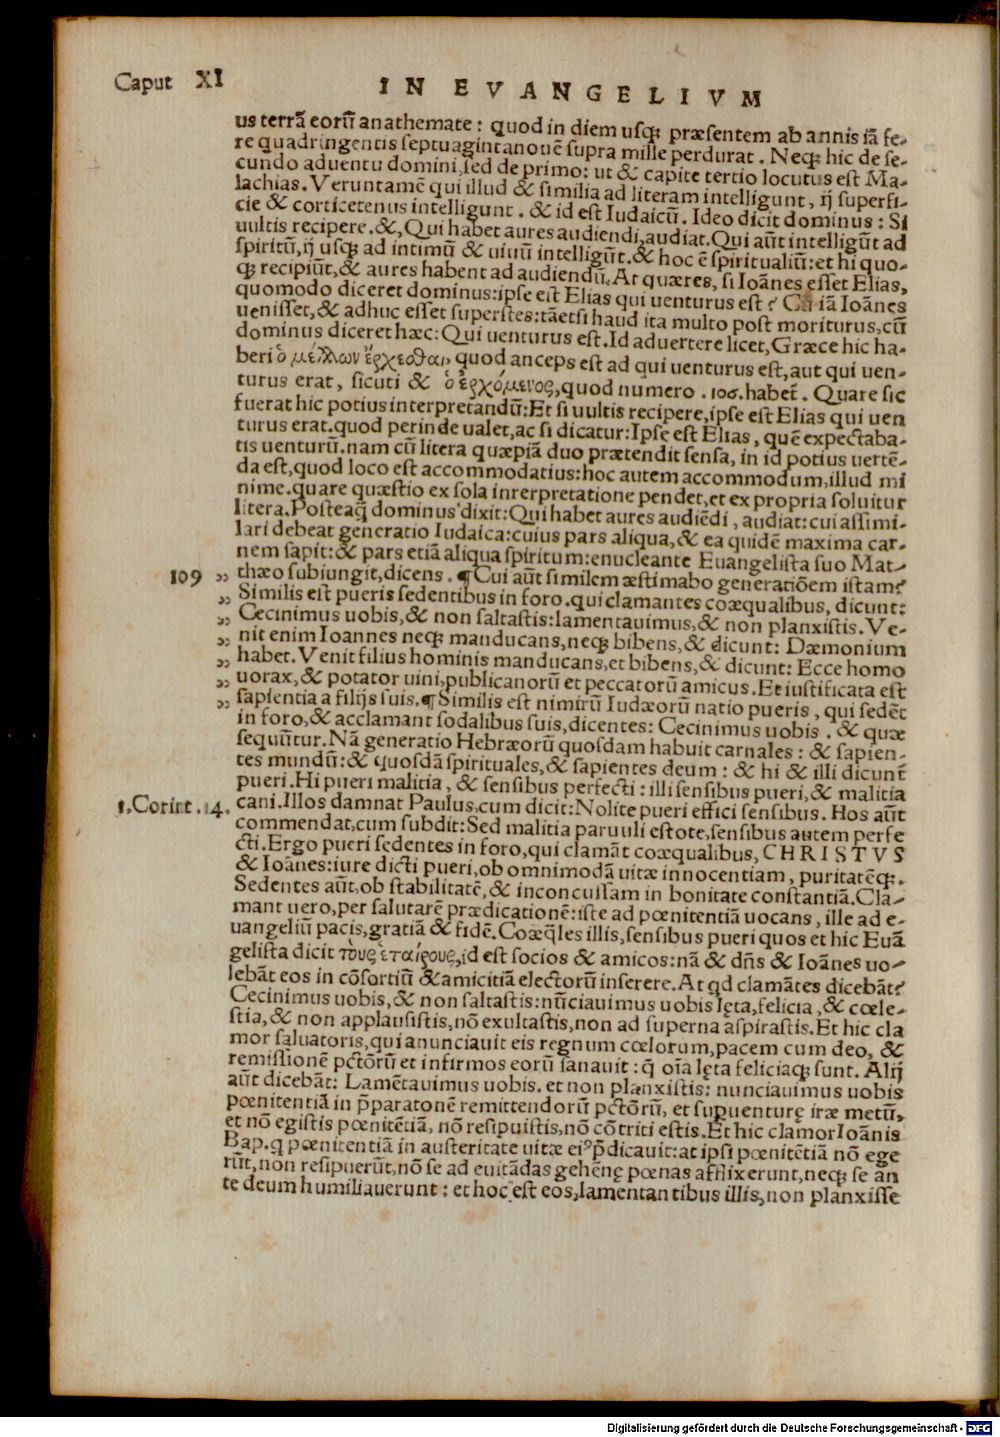 Caput XI
IN EVANGELIVM
us terrã eorũ anathemate: quod in diem usq; præsentem ab annis iã fe-
re quadringentis septuagintanouẽ supra mille perdurat. Neq; hic de se-
cundo aduentu domini, sed de primo: ut & capite tertio locutus est Ma-
lachias. Veruntamẽ qui illud & similia ad literam intelligunt, ij superfi-
cie & corticetenus intelligunt. & id est Iudaicũ. Ideo dicit dominus: Si
uultis recipere. &, Qui habet aures audiendi, audiat. Qui aũt intelligũt ad
spiritũ, ij usq; ad intimũ & uiuũ intelligũt. & hoc ẽ spiritualiũ: et hi quo-
q; recipiũt, & aures habent ad audiendũ. At quæres, si Ioãnes esset Elias,
quomodo diceret dominus: ipse est Elias qui uenturus est? Cũ iã Ioãnes
uenisset, & adhuc esset superstes: tãetsi haud ita multo post moriturus, cũ
dominus diceret hæc: Qui uenturus est. Id aduertere licet, Græce hic ha-
beri ὁ μέλλων ἔρχεσθαι, quod anceps est ad qui uenturus est, aut qui uen-
turus erat, sicuti & ὁ ἐρχόμενος, quod numero .106. habet̃. Quare sic
fuerat hic potius interpretandũ: Et si uultis recipere, ipse est Elias qui uen
turus erat. quod perinde ualet, ac si dicatur: Ipse est Elias, quẽ expectaba-
tis uenturũ. nam cũ litera quæpiã duo prætendit sensa, in id potius uertẽ-
da est, quod loco est accommodatius: hoc autem accommodum, illud mi
nime. quare quæstio ex sola inrerpretatione pendet, et ex propria soluitur
litera. Posteaq̃ dominus dixit: Qui habet aures audiẽdi, audiat: cui assimi-
lari debeat generatio Iudaica: cuius pars aliqua, & ea quidẽ maxima car-
nem sapit: & pars etiã aliqua spiritum: enucleante Euangelista suo Mat-
109 „ thæo subiungit, dicens. ¶ Cui aũt similem æstimabo generatiõem istam?
„ Similis est pueris sedentibus in foro. qui clamantes coæqualibus, dicunt:
„ Cecinimus uobis, & non saltastis: lamentauimus, & non planxistis. Ve-
„ nit enim Ioannes neq; manducans, neq; bibens, & dicunt: Dæmonium
„ habet. Venit filius hominis manducans, et bibens, & dicunt: Ecce homo
„ uorax, & potator uini, publicanorũ et peccatorũ amicus. Et iustificata est
„ sapientia a filijs suis. ¶ Similis est nimirũ Iudæorũ natio pueris, qui sedẽt
in foro, & acclamant sodalibus suis, dicentes: Cecinimus uobis. & quæ
sequũtur. Nã generatio Hebræorũ quosdam habuit carnales: & sapien-
tes mundũ: & quosdã spirituales, & sapientes deum: & hi & illi dicunt̃
pueri. Hi pueri malitia, & sensibus perfecti: illi sensibus pueri, & malitia
1. Corint. 14. cani. Illos damnat Paulus, cum dicit: Nolite pueri effici sensibus. Hos aũt
commendat, cum subdit: Sed malitia paruuli estote, sensibus autem perfe
cti. Ergo pueri sedentes in foro, qui clamãt coæqualibus, CHRISTVS
& Ioãnes: iure dicti pueri, ob omnimodã uitæ innocentiam, puritatẽq;.
Sedentes aũt, ob stabilitatẽ, & inconcussam in bonitate constantiã. Cla-
mant uero, per salutarẽ prædicationẽ: iste ad pœnitentiã uocans, ille ad e-
uangeliũ pacis, gratiã & fidẽ. Coæq̃les illis, sensibus pueri quos et hic Euã
gelista dicit τοὺς ἑταίρους, id est socios & amicos: nã & dñs & Ioãnes uo-
lebãt eos in cõsortiũ & amicitiã electorũ inserere. At qd clamãtes dicebãt?
Cecinimus uobis, & non saltastis: nũciauimus uobis lęta, felicia, & cœle-
stia, & non applausistis, nõ exultastis, non ad superna aspirastis. Et hic cla
mor saluatoris, qui anunciauit eis regnum cœlorum, pacem cum deo, &
remissionẽ pctõrũ et infirmos eorũ sanauit: q̃ oĩa lęta feliciaq; sunt. Alij
aũt dicebãt: Lamẽtauimus uobis. et non planxistis: nunciauimus uobis
pœnitentiã in p̃paratonẽ remittendorũ pctõrũ, et superuenturę iræ metũ,
et nõ egistis pœnitẽtiã, nõ resipuistis, nõ cõtriti estis. Et hic clamor Ioãnis
Bap. q pœnitentiã in austeritate uitæ eiꝰ p̃dicauit: at ipsi pœnitẽtiã nõ ege
rũt, non resipuerũt, nõ se ad euitãdas gehẽnę pœnas afflixerunt, neq; se an
te deum humiliauerunt: et hoc est eos, lamentantibus illis, non planxisse
Digitalisierung gefördert durch die Deutsche Forschungsgemeinschaft - DFG